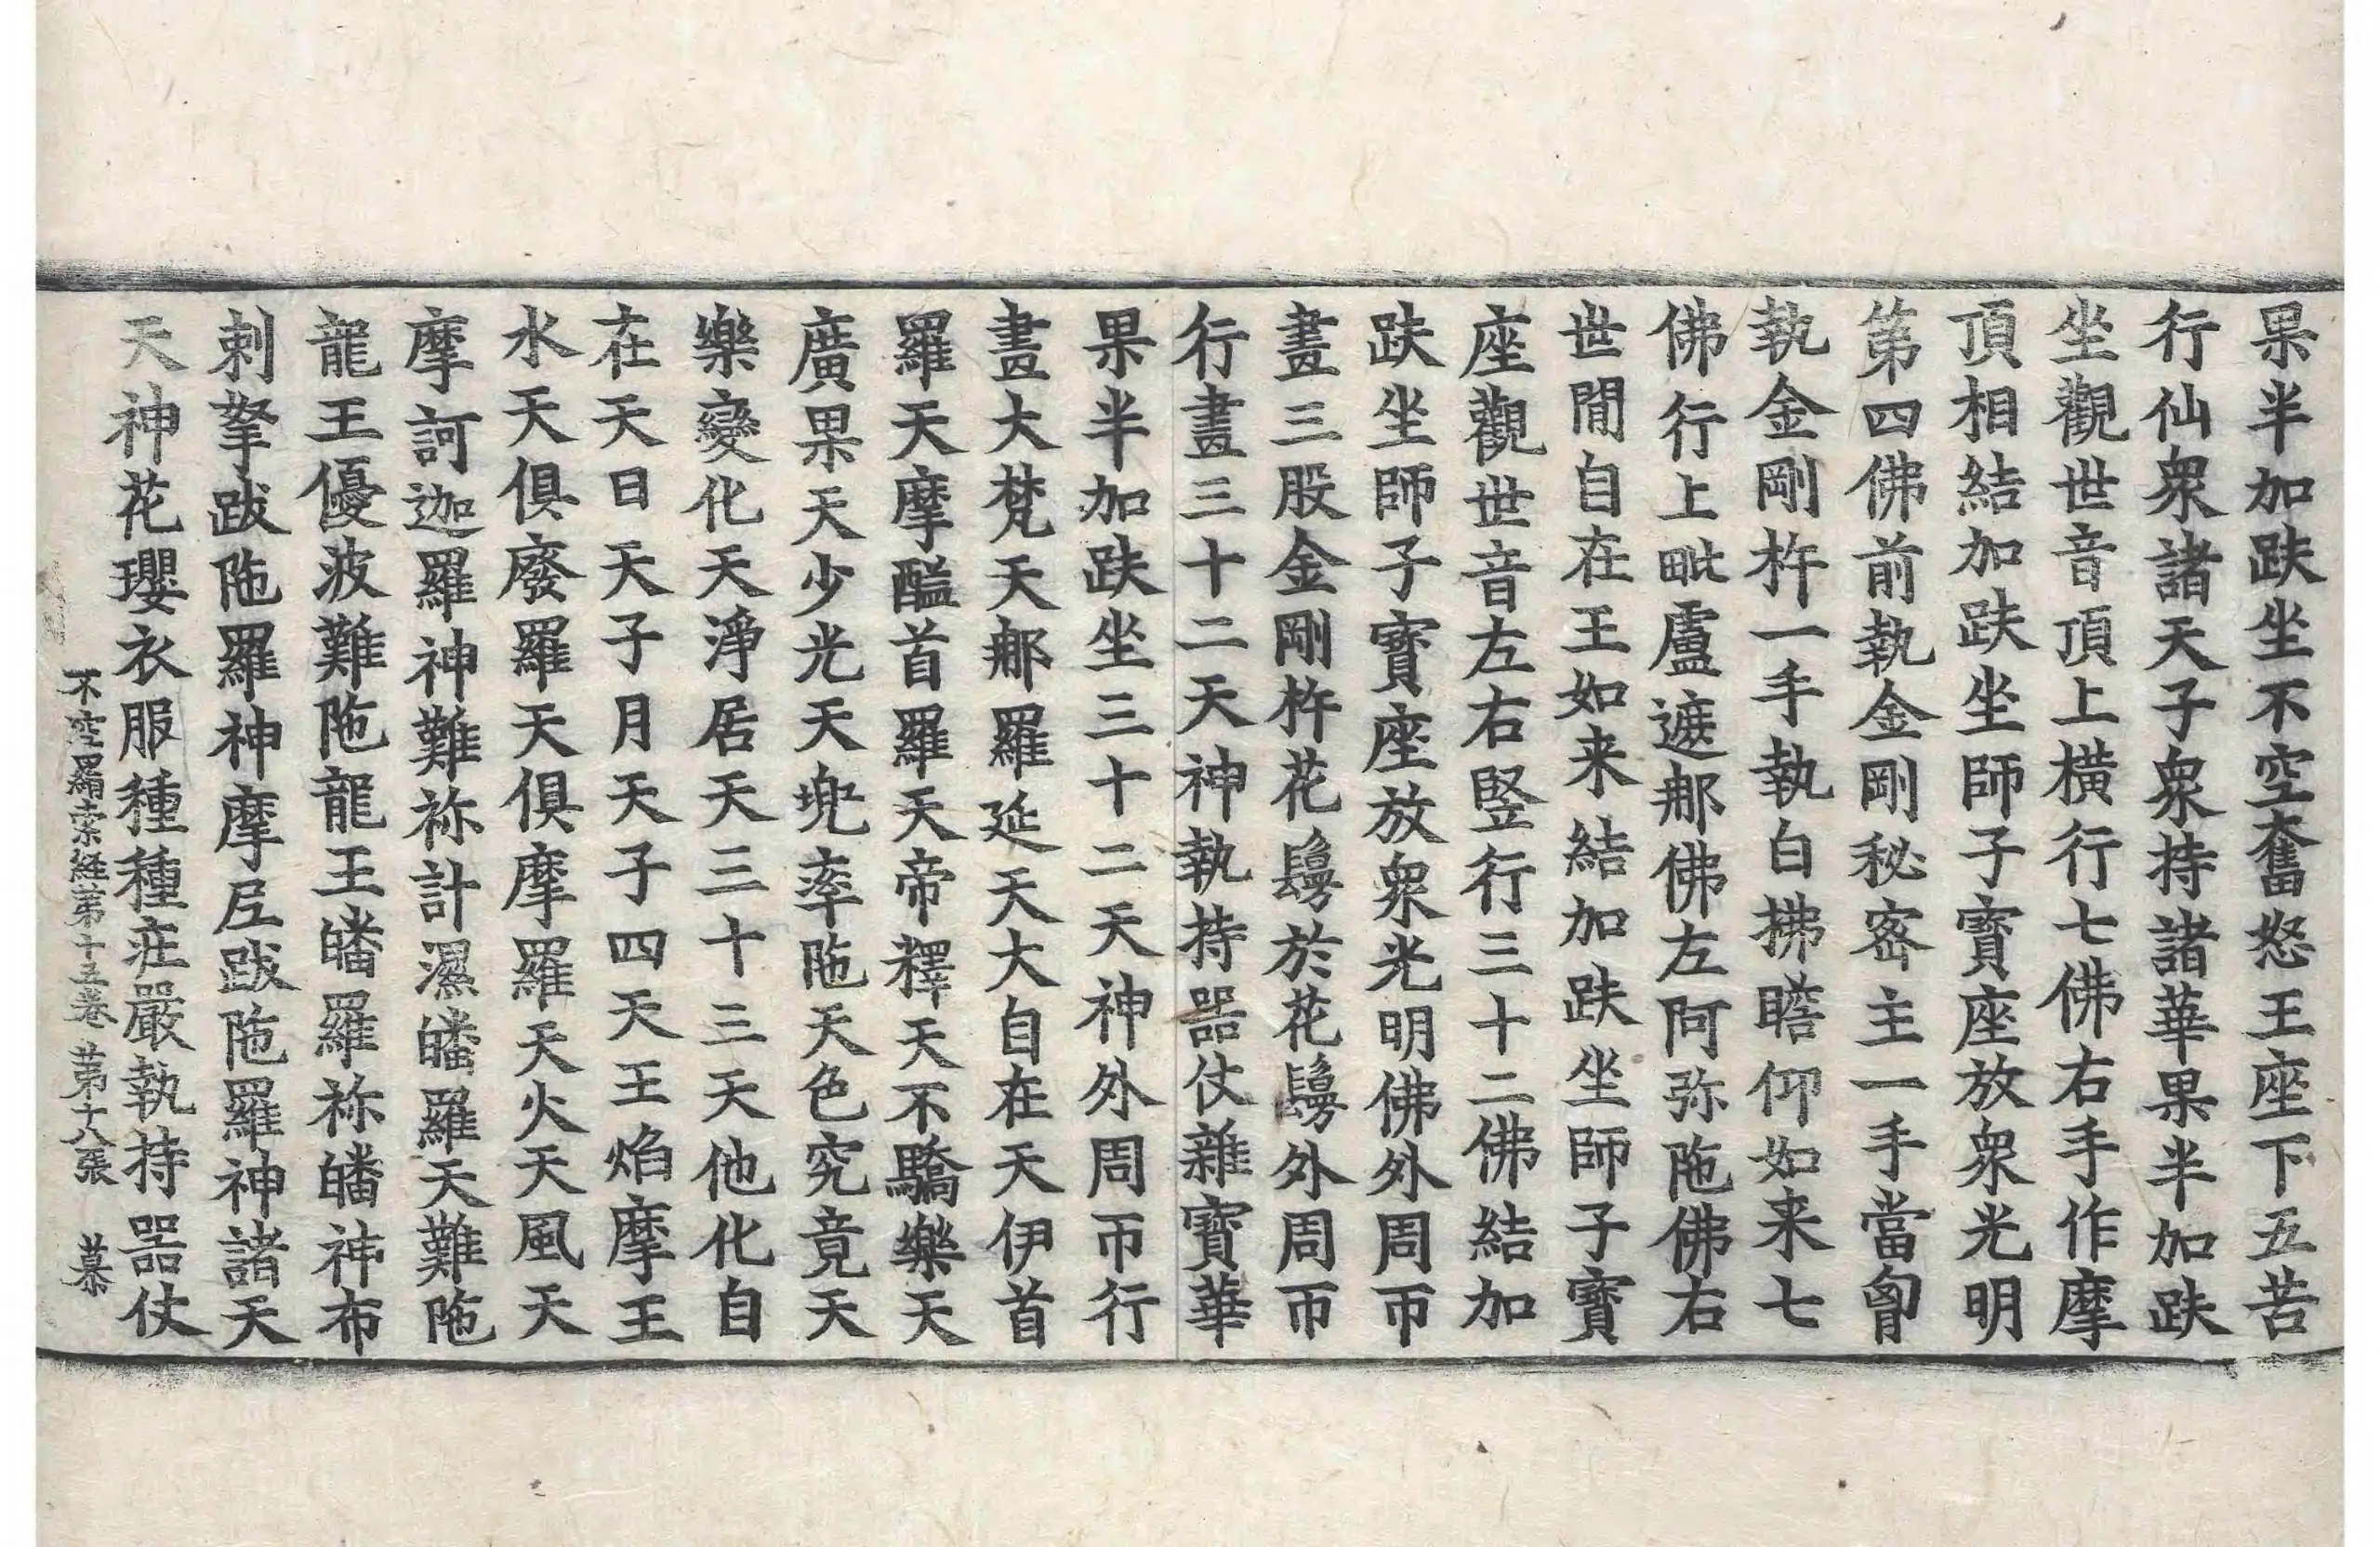 果半加趺坐不空奮怒王座下五苦
行仙衆諸天子衆持諸華果半加趺
坐觀世音頂上橫行七佛右手作摩
頂相結加趺坐師子寶座放衆光明
第四佛前執金剛秘密主一手當胷
執金剛杵一手執白拂瞻仰如来七
佛行上毗盧遮那佛左阿弥陁佛右
世閒自在王如来結加趺坐師子寶
座觀世音左右竪行三十二佛結加
趺坐師子寶座放衆光明佛外周帀
畫三股金剛杵花鬘於花鬘外周帀
行畫三十二天神執持器仗雜寶華
果半加趺坐三十二天神外周帀行
畫大梵天那羅延天大自在天伊首
羅天摩醯首羅天帝釋天不驕樂天
廣果天少光天兜率陁天色究竟天
樂變化天淨居天三十三天他化自
在天日天子月天子四天王焰摩王
水天俱廢羅天俱摩羅天火天風天
摩訶迦羅神難祢計濕皤羅天難陁
龍王優波難陁龍王皤羅祢皤神布
剌拏跋陁羅神摩尼跋陁羅神諸天
天神花瓔衣服種種莊嚴執持器仗
不空羂索経第十五卷 第十八張 慕